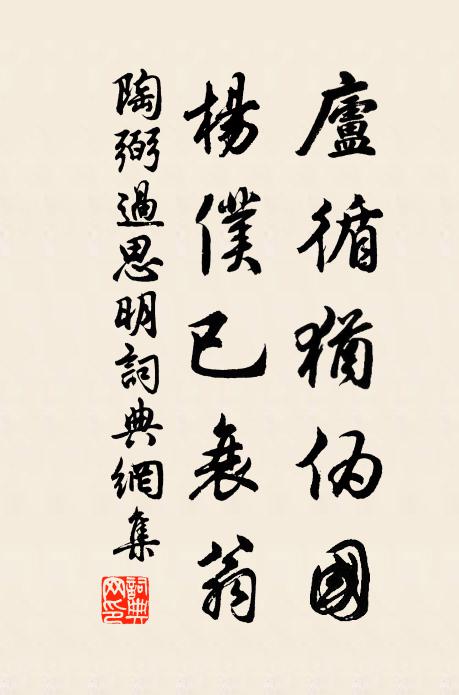 廬循猶偽國
楊僕已衰翁
陶弼過思明詞典網集
詞典網印